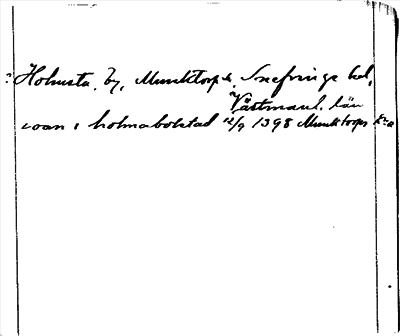 Holmsta, by, Munktorp s, Snefringe hd,
Västmanl. län
i holmabolstad 12/9 1398 Munktorps